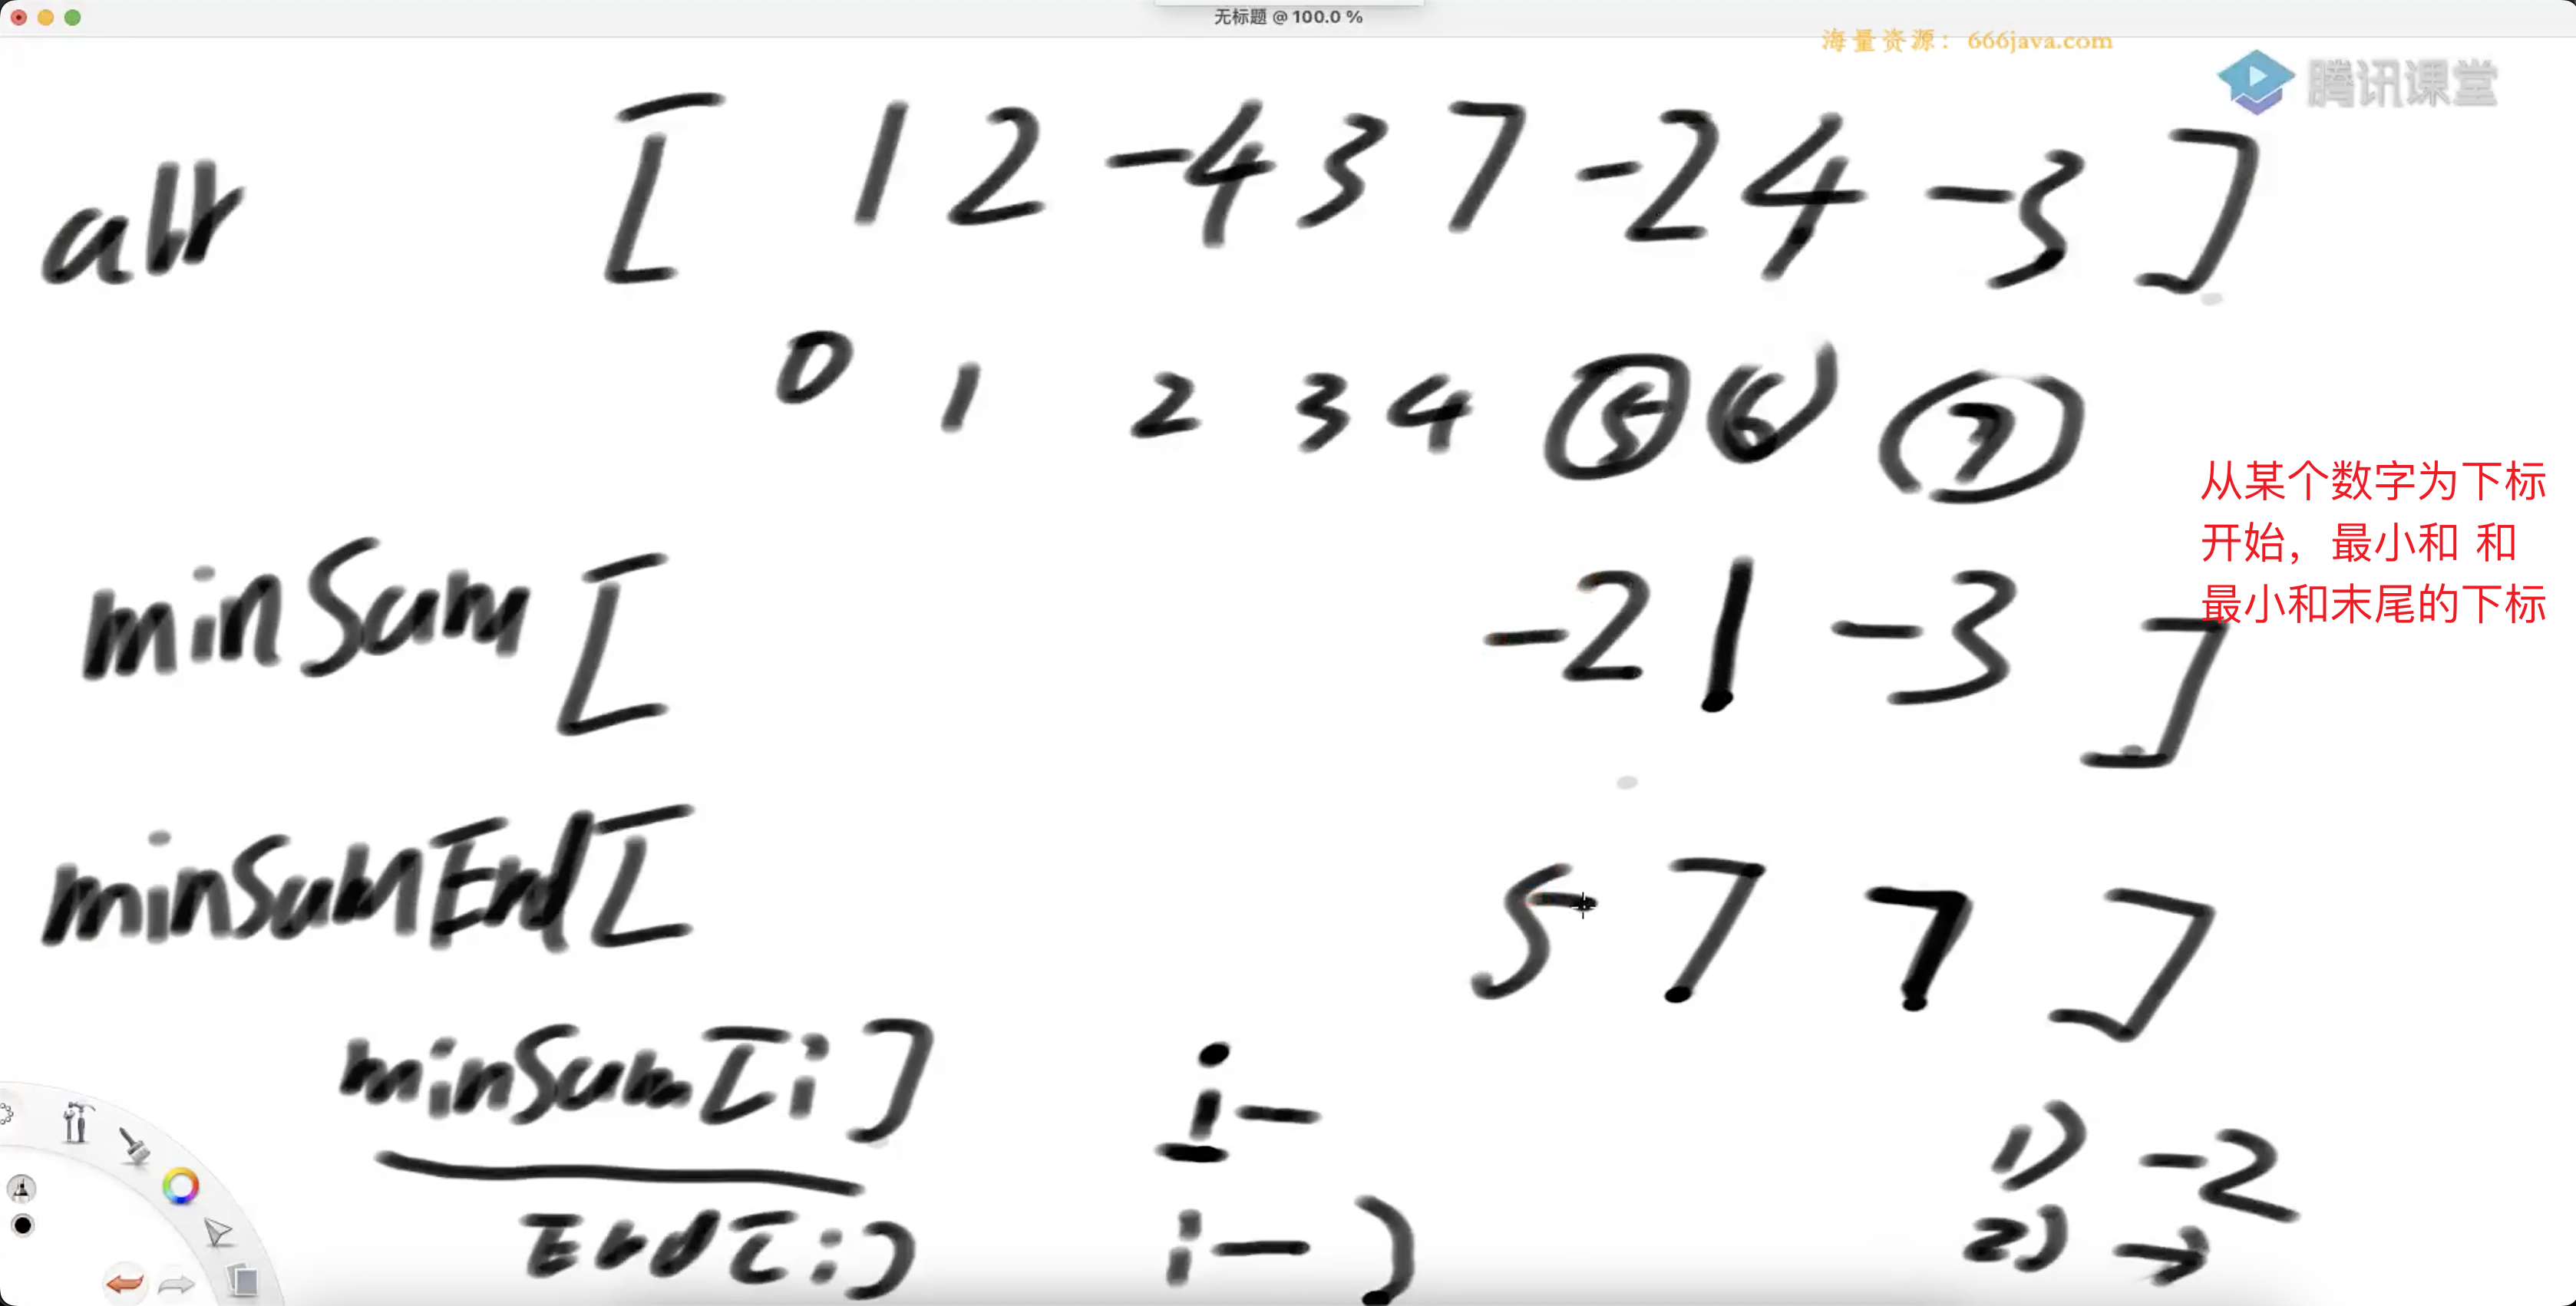 无标题 @ 100.0 %
海量资源：666java.com
腾讯课堂
arr [ 1 2 -4 3 7 -2 4 -3 ]
0 1 2 3 4 5 6 7
从某个数字为下标
开始，最小和 和
最小和末尾的下标
minSum [ -2 1 -3 ]
minSumEnd [ 5 7 7 ]
minSum[i] i-
End[i] i-)
1) -2
2) →